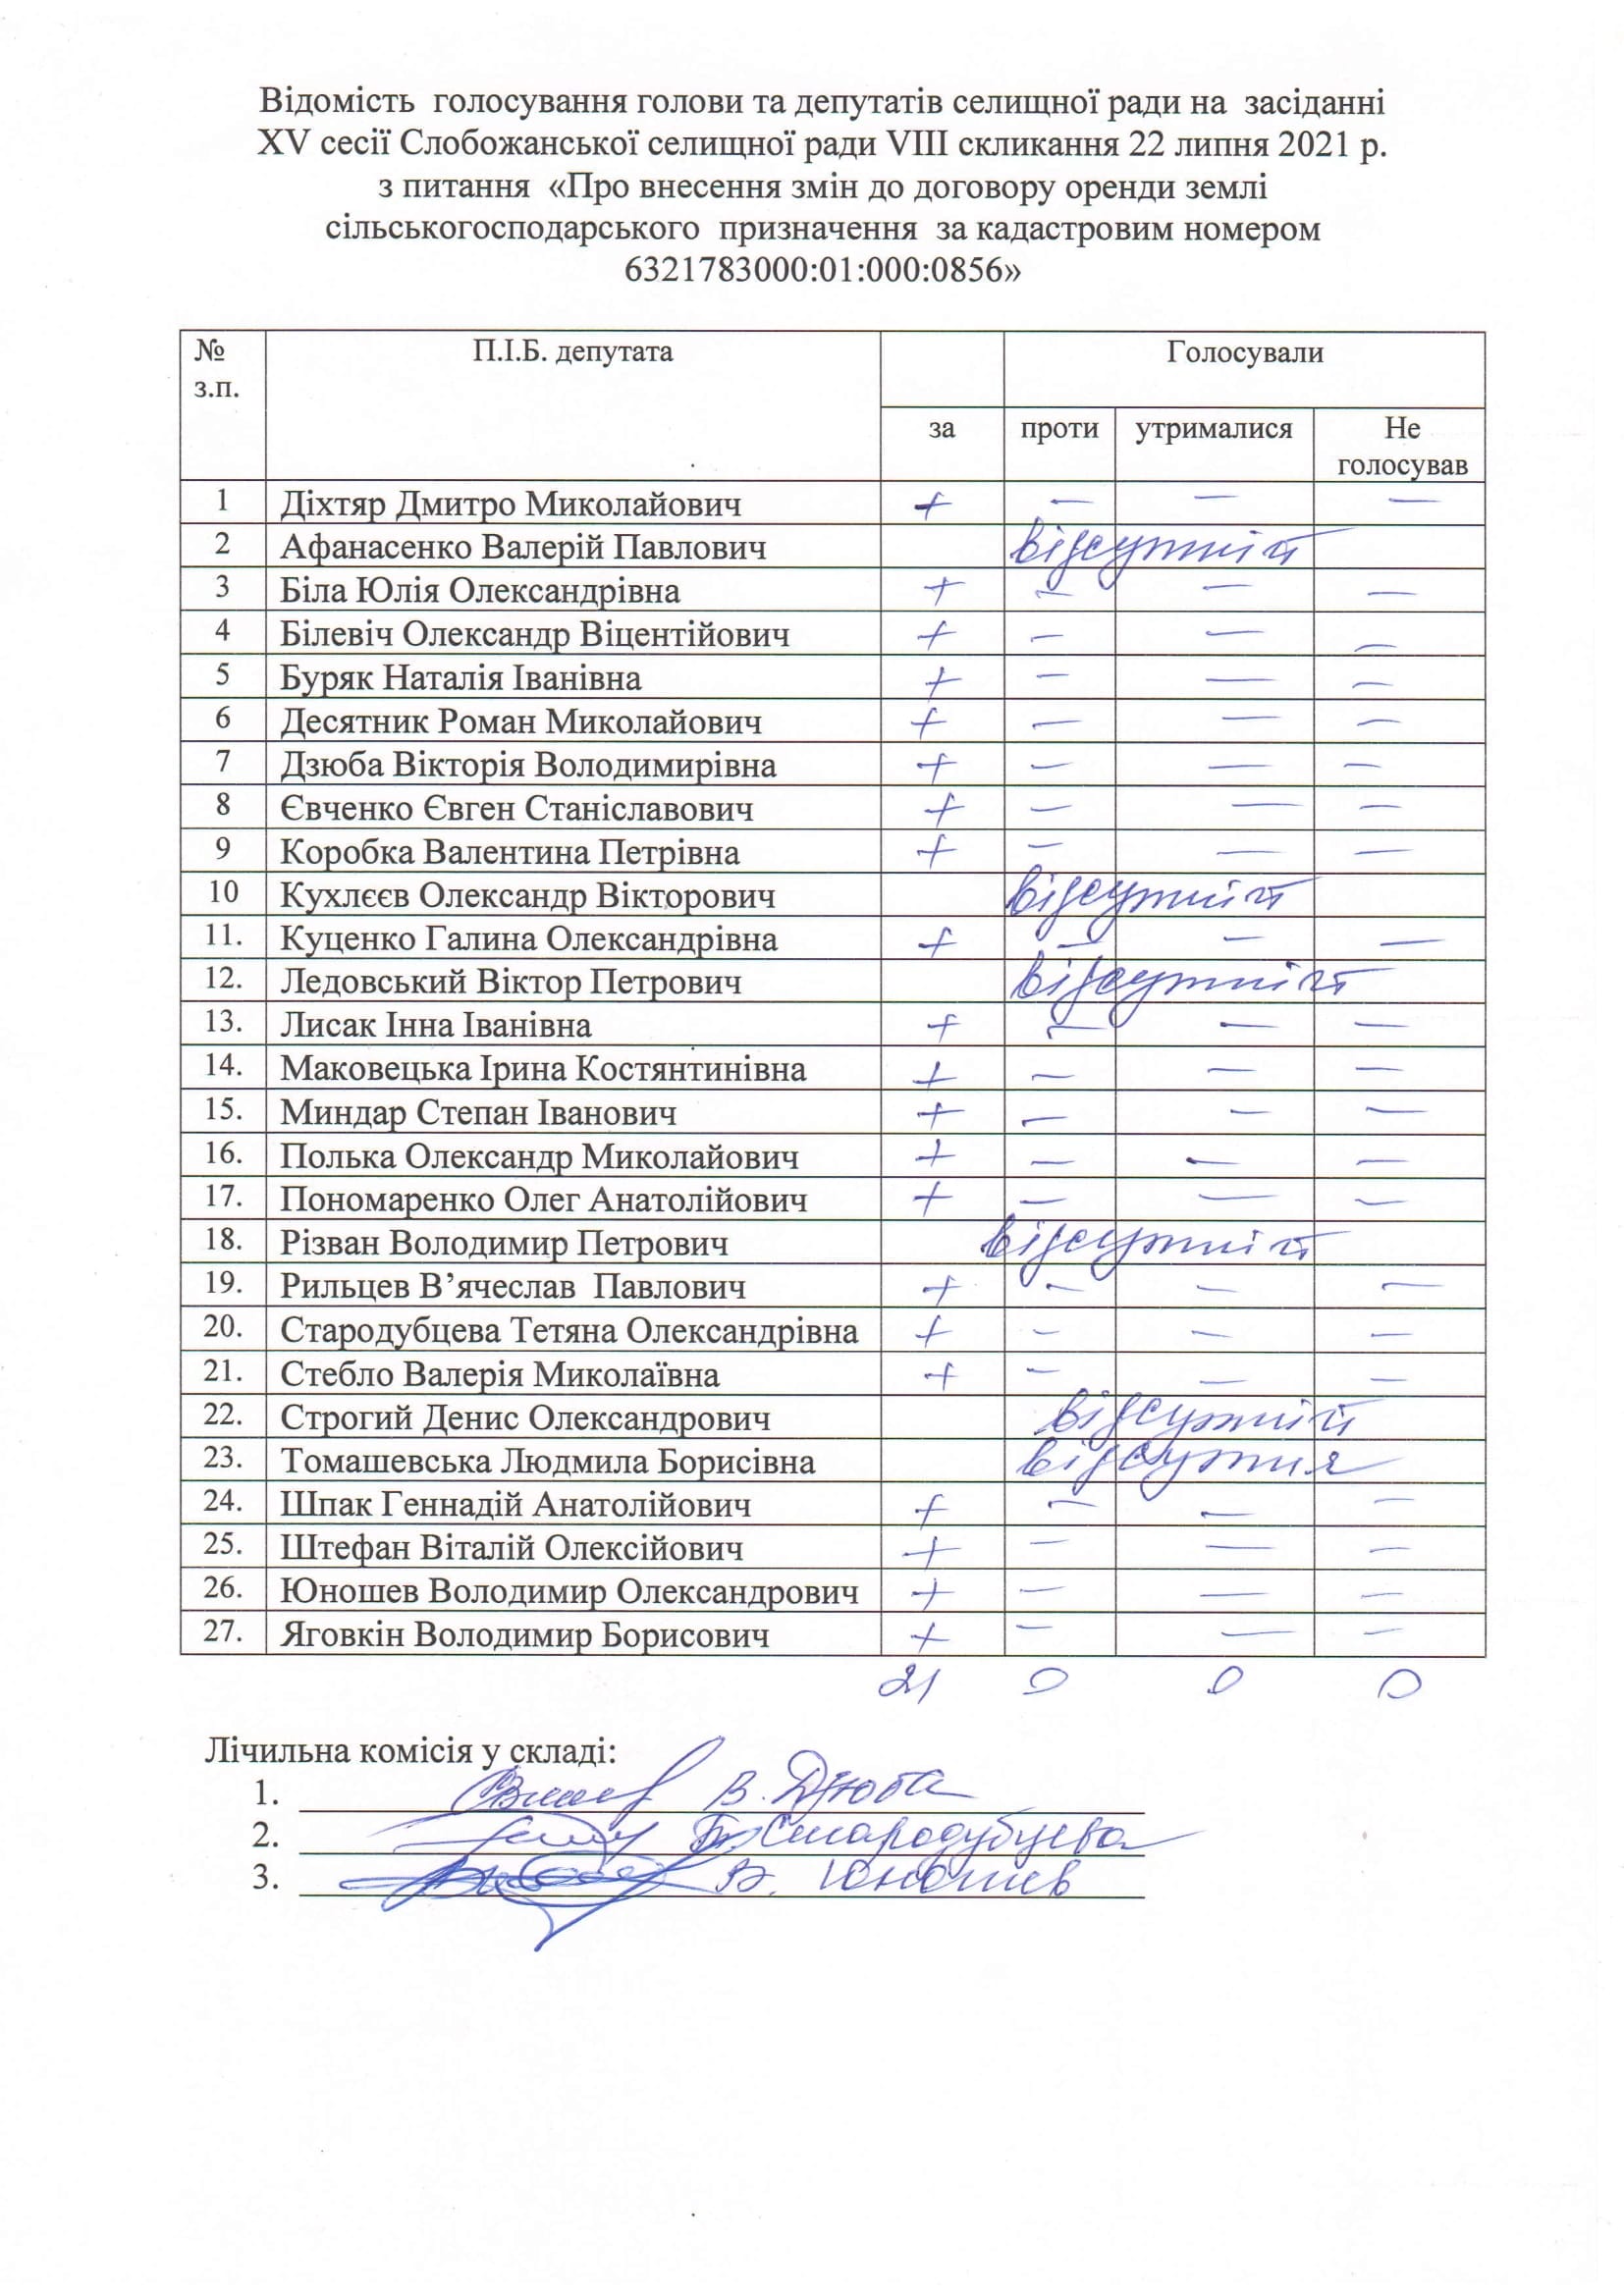 Відомість голосування голови та депутатів селищної ради на засіданні
XV сесії Слобожанської селищної ради VIII скликання 22 липня 2021 р.
з питання «Про внесення змін до договору оренди землі
сільськогосподарського призначення за кадастровим номером
6321783000:01:000:0856»
№ з.п. П.І.Б. депутата Голосували
за проти утрималися Не голосував
1 Діхтяр Дмитро Миколайович + — — —
2 Афанасенко Валерій Павлович відсутній
3 Біла Юлія Олександрівна + — — —
4 Білевіч Олександр Віцентійович + — — —
5 Буряк Наталія Іванівна + — — —
6 Десятник Роман Миколайович + — — —
7 Дзюба Вікторія Володимирівна + — — —
8 Євченко Євген Станіславович + — — —
9 Коробка Валентина Петрівна + — — —
10 Кухлєєв Олександр Вікторович відсутній
11. Куценко Галина Олександрівна + — — —
12. Ледовський Віктор Петрович відсутній
13. Лисак Інна Іванівна + — — —
14. Маковецька Ірина Костянтинівна + — — —
15. Миндар Степан Іванович + — — —
16. Полька Олександр Миколайович + — — —
17. Пономаренко Олег Анатолійович + — — —
18. Різван Володимир Петрович відсутній
19. Рильцев В’ячеслав Павлович + — — —
20. Стародубцева Тетяна Олександрівна + — — —
21. Стебло Валерія Миколаївна + — — —
22. Строгий Денис Олександрович відсутній
23. Томашевська Людмила Борисівна відсутня
24. Шпак Геннадій Анатолійович + — — —
25. Штефан Віталій Олексійович + — — —
26. Юношев Володимир Олександрович + — — —
27. Яговкін Володимир Борисович + — — —
21 0 0 0
Лічильна комісія у складі:
1. В. Дзюба
2. Т. Стародубцева
3. В. Юношев